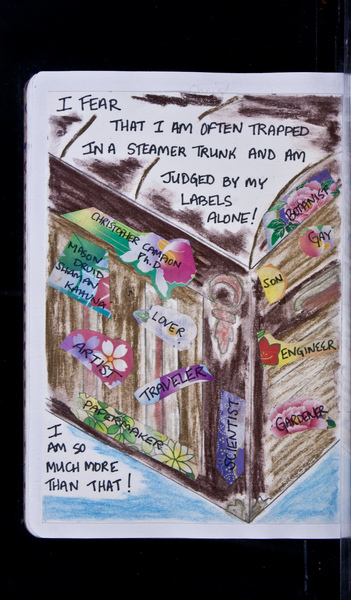 I FEAR
THAT I AM OFTEN TRAPPED
IN A STEAMER TRUNK AND AM
JUDGED BY MY
LABELS
ALONE!
BOTANIST
GAY
CHRISTOPHER CAMPION
Ph.D
MASON
DRUID
SHAMAN
KAHUNA
SON
LOVER
ENGINEER
ARTIST
TRAVELER
SCIENTIST
GARDENER
PAPERMAKER
I
AM SO
MUCH MORE
THAN THAT!